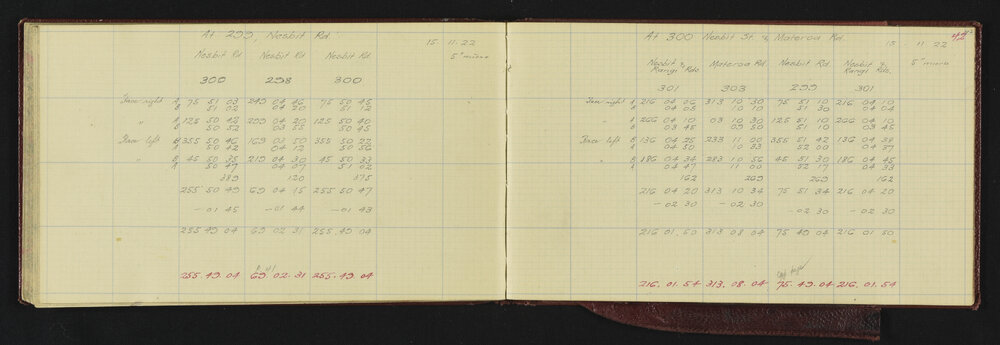 At 299, Nesbit Rd.
15. 11. 22
Nesbit Rd Nesbit Rd Nesbit Rd
5" micro
300 298 300
Face right A 75 51 03 249 04 46 75 50 45
B 51 02 04 20 51 12
" A 125 50 42 299 04 20 125 50 40
B 50 52 03 55 50 45
Face left B 355 50 46 169 03 50 355 50 22
A 50 42 04 12 50 56
" B 45 50 35 219 04 30 45 50 33
A 50 47 04 07 51 02
389 120 375
255 50 49 69 04 15 255 50 47
-01 45 -01 44 -01 43
255 49 04 69 02 31 255 49 04
255. 49. 04 69. 02. 31 255. 49. 04
42
At 300 Nesbit St. & Materoa Rd.
15 11. 22
Nesbit & Rangi Rds. Materoa Rd. Nesbit Rd. Nesbit & Rangi Rds.
5" micro
301 303 299 301
Face right A 216 04 06 313 10 30 75 51 10 216 04 10
B 04 05 10 10 51 30 04 04
" A 266 04 10 03 10 30 125 51 10 266 04 10
B 03 45 09 50 51 10 03 45
Face left B 136 04 25 233 11 00 355 51 42 136 04 38
A 04 50 10 33 52 00 04 37
" B 186 04 34 283 10 56 45 51 30 186 04 45
A 04 47 11 00 52 17 04 33
162 269 269 162
216 04 20 313 10 34 75 51 34 216 04 20
-02 30 -02 30 -02 30 -02 30
216 01 50 313 08 04 75 49 04 216 01 50
216. 01. 54 313. 08. 04 75. 49. 04 216. 01. 54